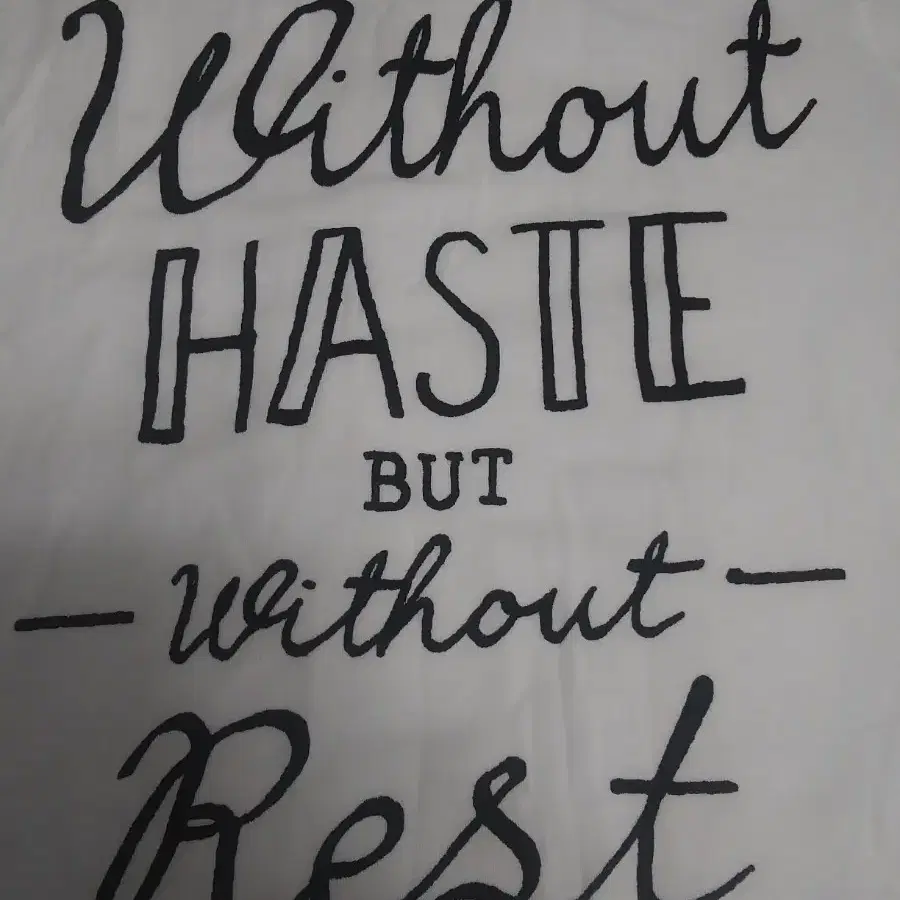 Without
HASTE
BUT
— Without —
Rest